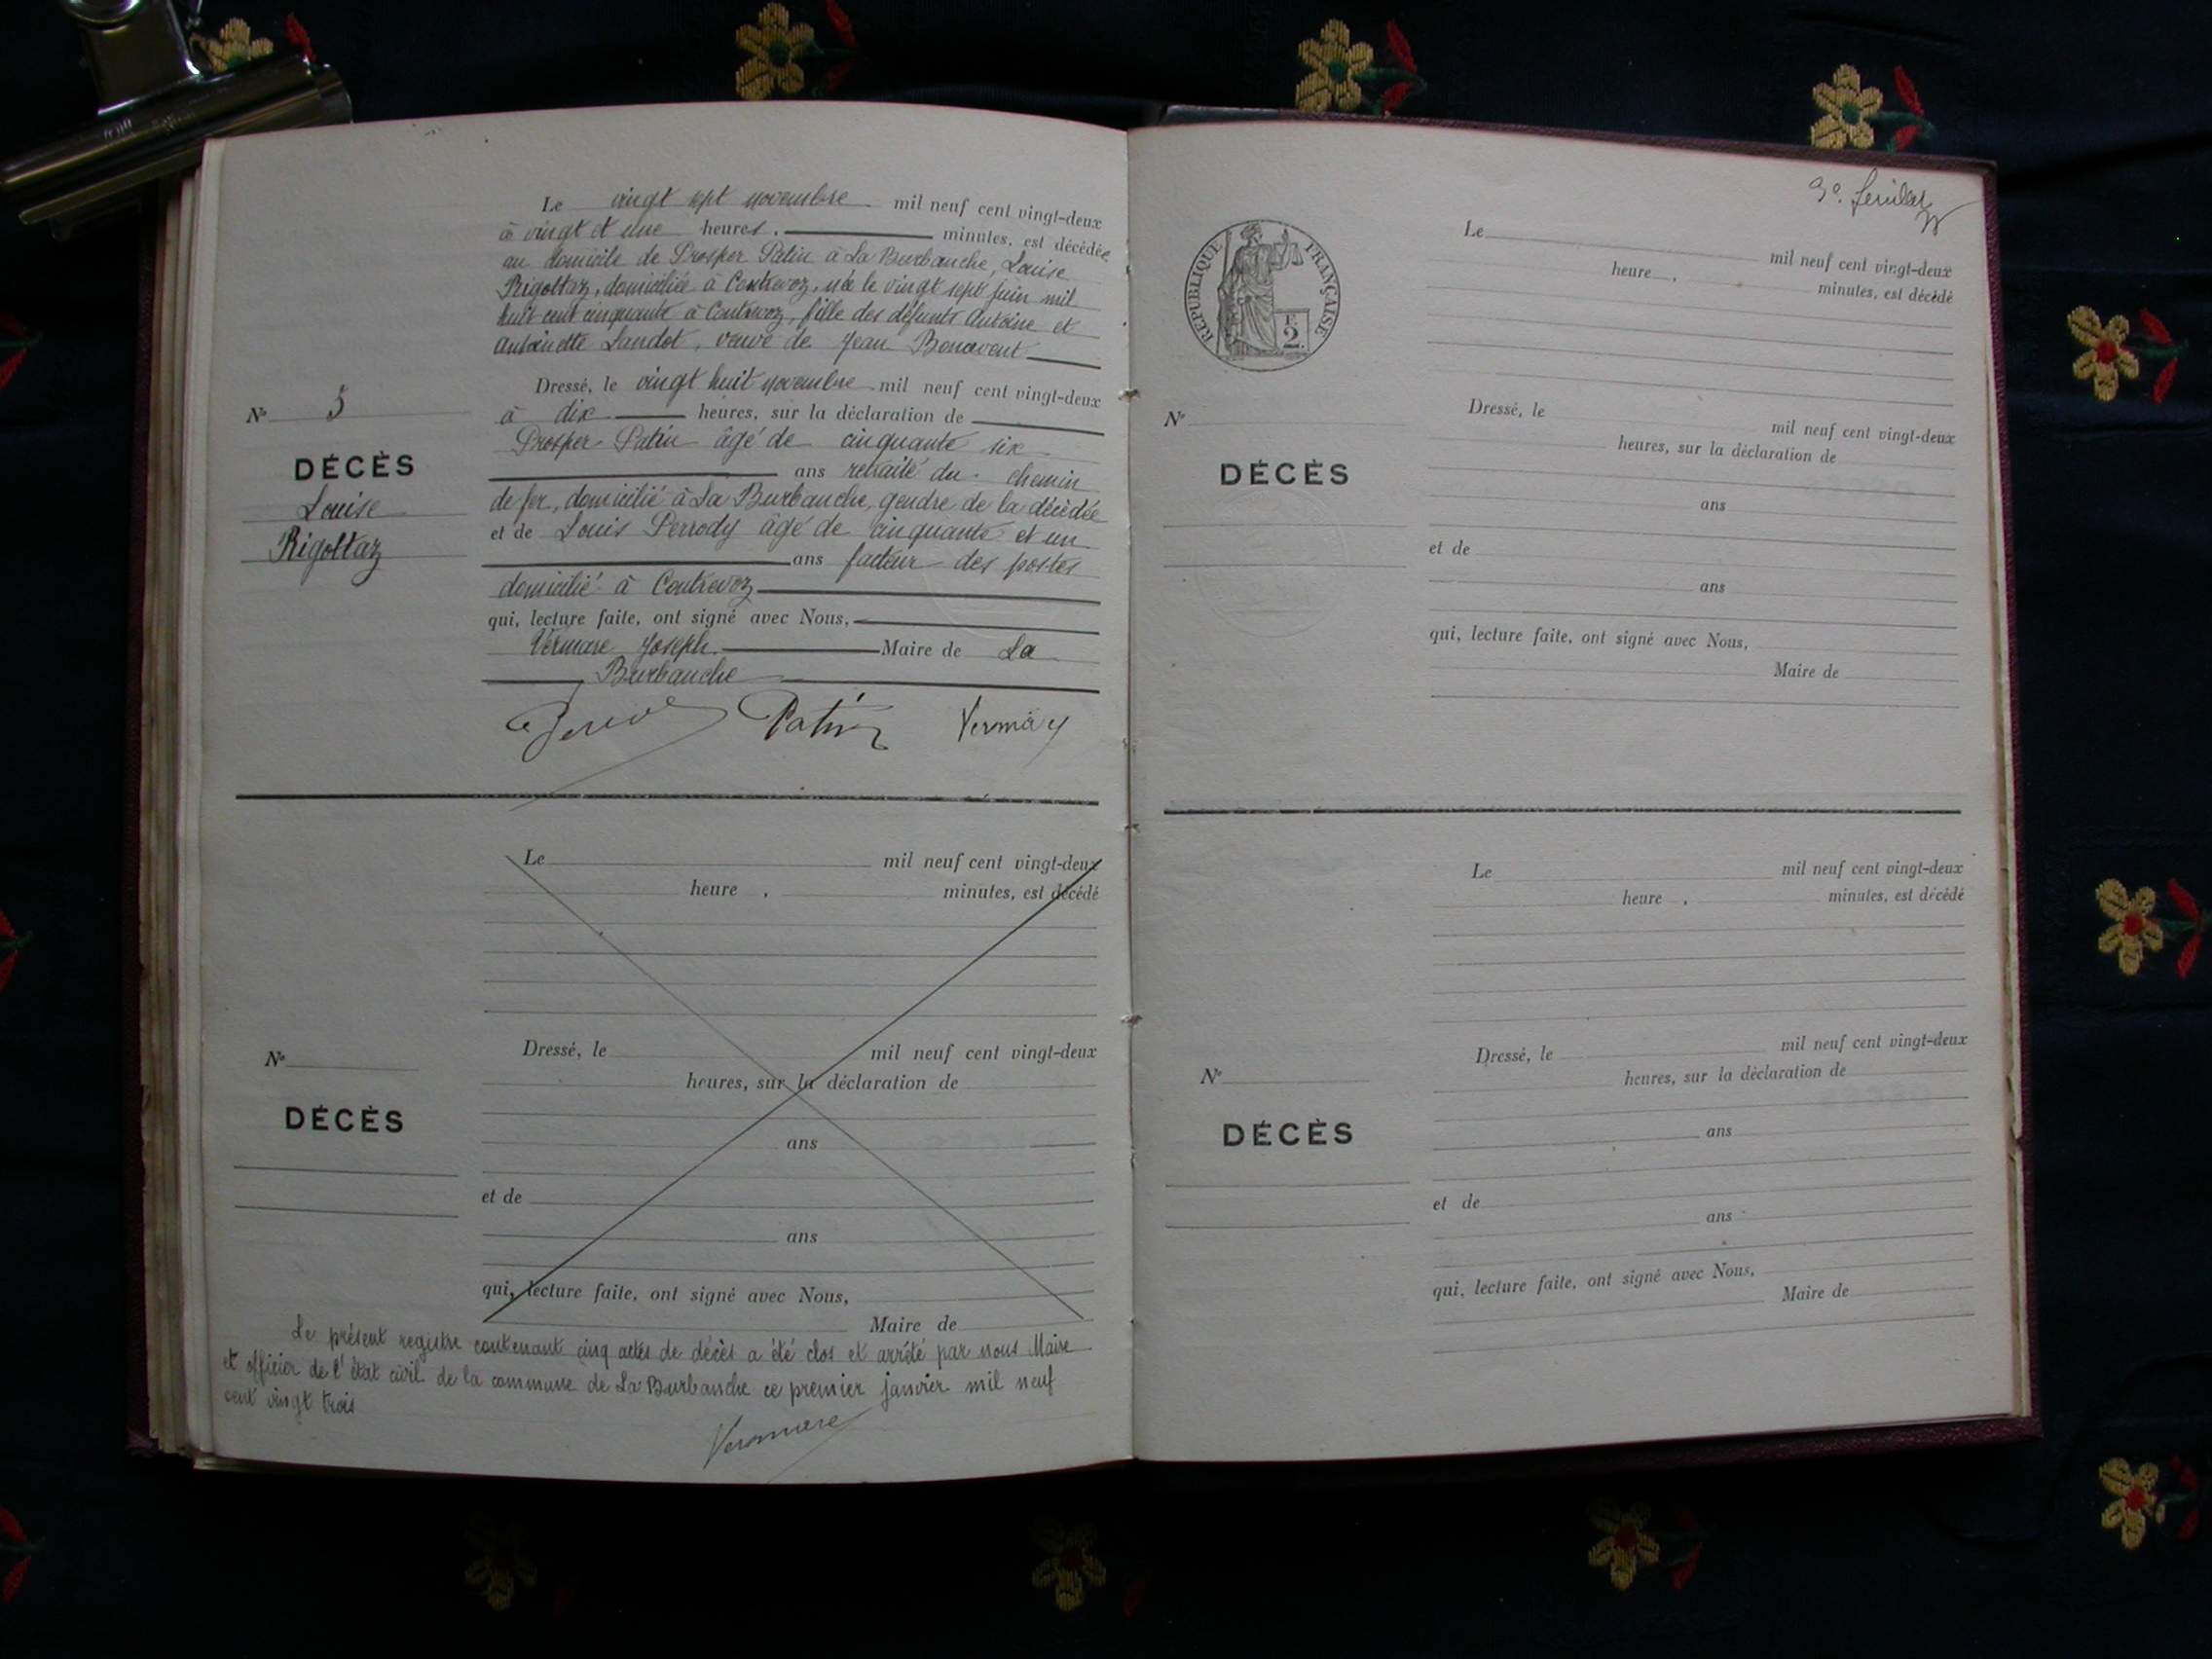 Le vingt sept novembre mil neuf cent vingt-deux
à vingt et une heures, minutes, est décédée
au domicile de Prosper Patin à La Burbanche, Louise
Rigottaz, domiciliée à Contrevoz, née le vingt sept juin mil
huit cent cinquante à Contrevoz, fille des défunts Antoine et
Antoinette Landot, veuve de Jean Bonavent
Dressé, le vingt huit novembre mil neuf cent vingt-deux
à dix heures, sur la déclaration de
Prosper Patin âgé de cinquante six
ans retraité du chemin
de fer, domicilié à La Burbanche, gendre de la décédée
et de Louis Perrody âgé de cinquante et un
ans facteur des postes
domicilié à Contrevoz
qui, lecture faite, ont signé avec Nous,
Vermare Joseph. Maire de La
Burbanche
Patin
N° 5
DÉCÈS
Louise
Rigottaz
Le mil neuf cent vingt-deux
heure , minutes, est décédé
Dressé, le mil neuf cent vingt-deux
heures, sur la déclaration de
ans
et de
ans
qui, lecture faite, ont signé avec Nous,
Maire de
N°
DÉCÈS
Le présent registre contenant cinq actes de décès a été clos et arrêté par nous Maire
et officier de l'état civil de la commune de La Burbanche ce premier janvier mil neuf
cent vingt trois
Vermare
RÉPUBLIQUE FRANÇAISE
F.
2.
Le mil neuf cent vingt-deux
heure , minutes, est décédé
Dressé, le mil neuf cent vingt-deux
heures, sur la déclaration de
ans
et de
ans
qui, lecture faite, ont signé avec Nous,
Maire de
N°
DÉCÈS
Le mil neuf cent vingt-deux
heure , minutes, est décédé
Dressé, le mil neuf cent vingt-deux
heures, sur la déclaration de
ans
et de
ans
qui, lecture faite, ont signé avec Nous,
Maire de
N°
DÉCÈS